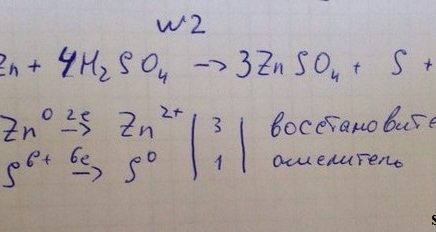 №2
Zn + 4H₂SO₄ → 3ZnSO₄ + S +
Zn⁰ 2e→ Zn²⁺ | 3 | восстановите
S⁶⁺ 6e→ S⁰ | 1 | окислитель
s